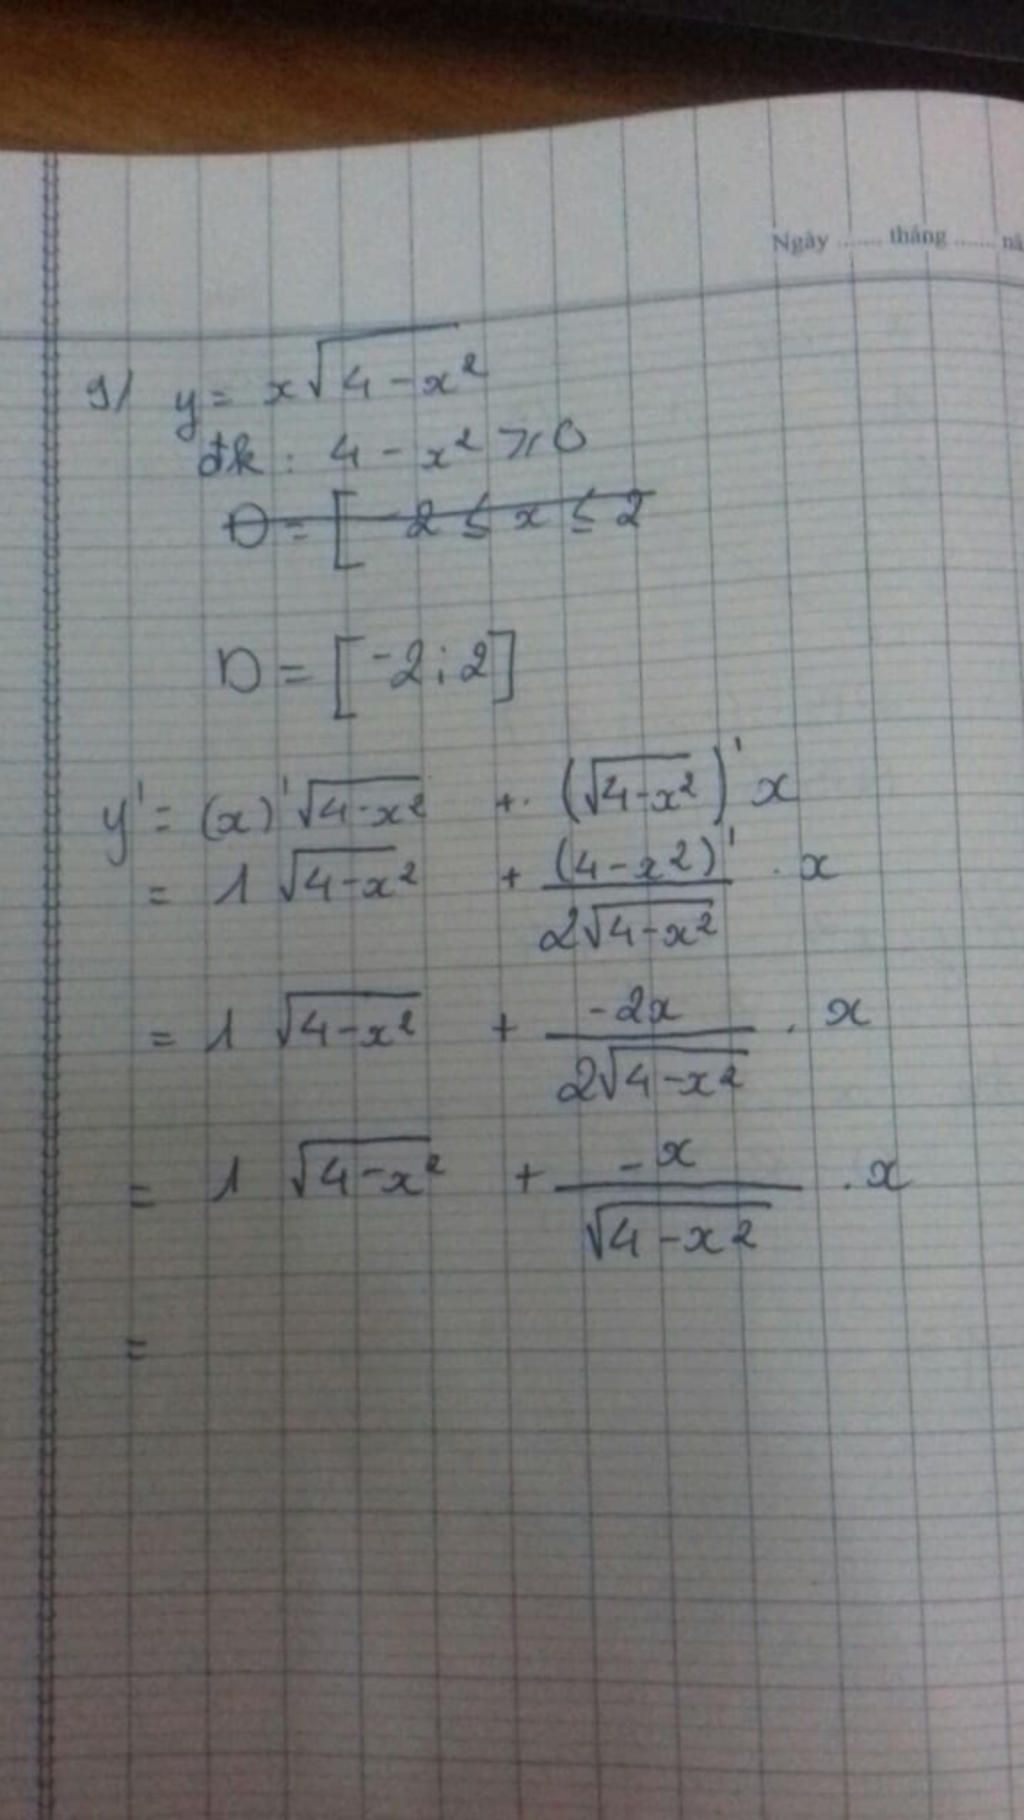 Ngày ....... tháng ....... nă
g/ y = x√(4 - x²)
đk : 4 - x² ≥ 0
D = [ -2 ≤ x ≤ 2
D = [-2 ; 2]
y' = (x)' √(4-x²) + (√(4-x²))' x
= 1 √(4-x²) + (4-x²)' / 2√(4-x²) . x
= 1 √(4-x²) + -2x / 2√(4-x²) . x
= 1 √(4-x²) + -x / √(4-x²) . x
=